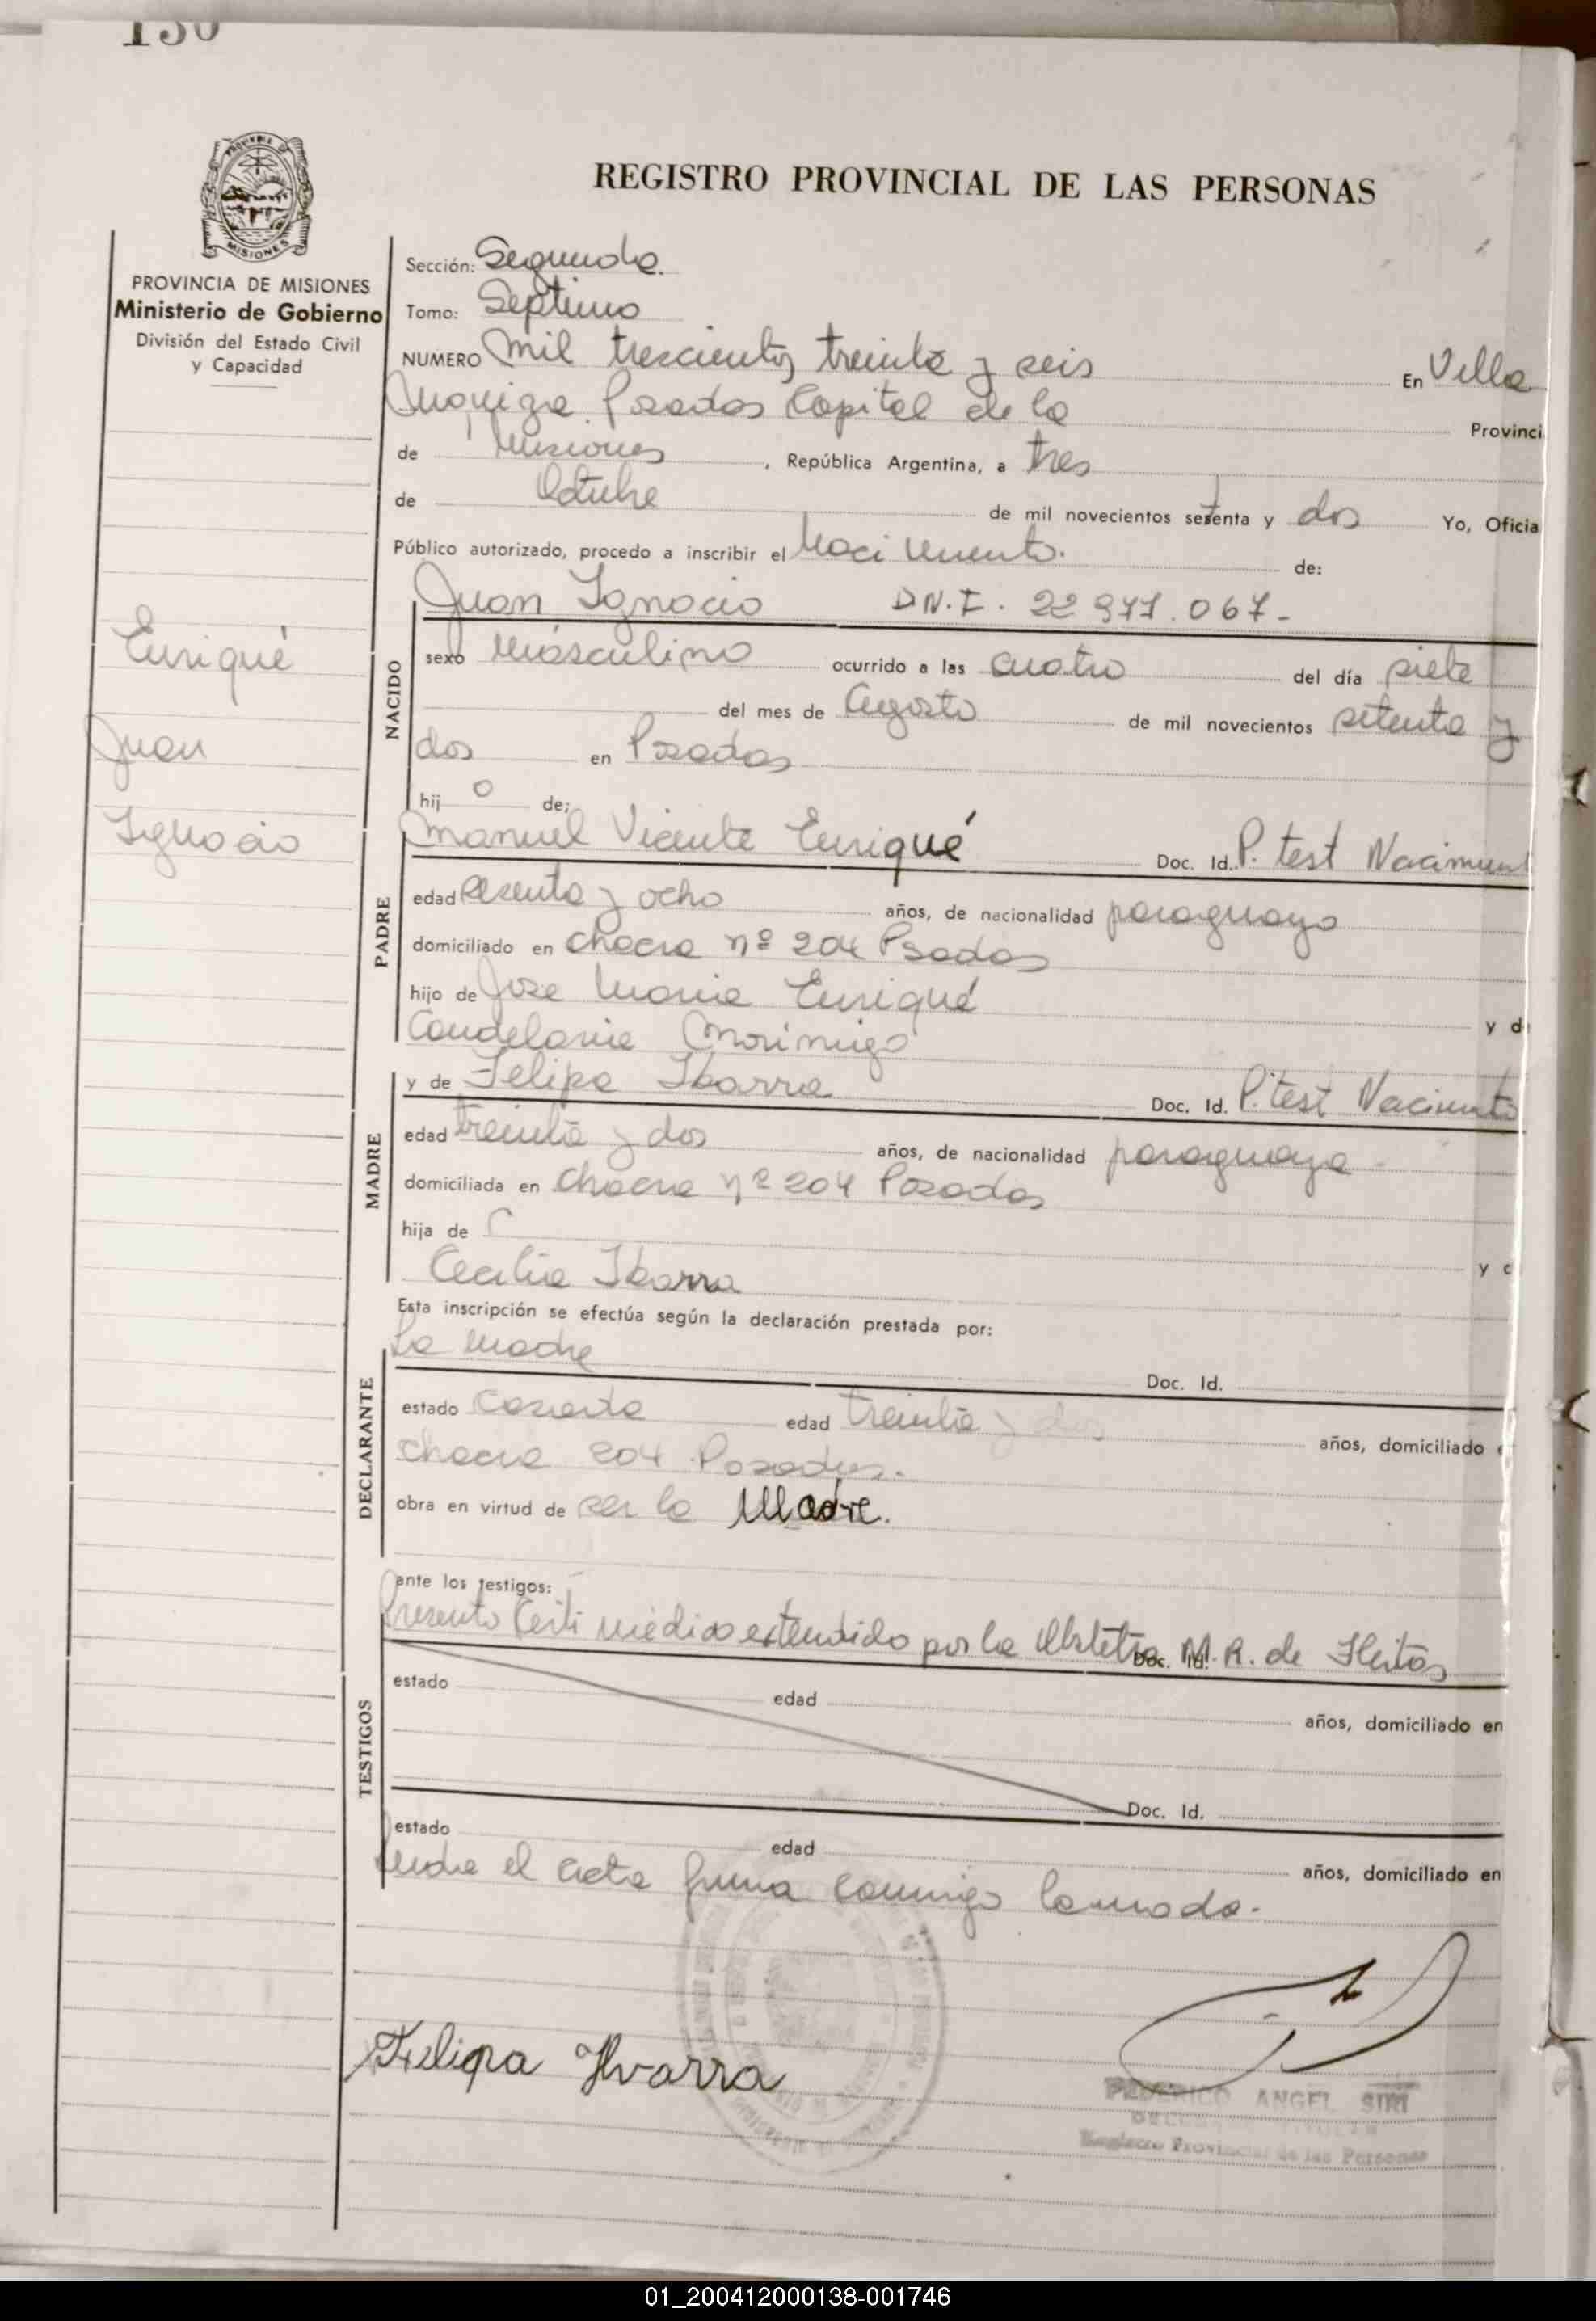 130
REGISTRO PROVINCIAL DE LAS PERSONAS
PROVINCIA DE MISIONES
Ministerio de Gobierno
División del Estado Civil
y Capacidad
Sección: Segunda.
Tomo: Septimo
NUMERO mil trescientos treinta y seis En Villa
Urquiza Posadas Capital de la Provinci
de Misiones, República Argentina, a tres
de Octubre de mil novecientos setenta y dos Yo, Oficia
Público autorizado, procedo a inscribir el Nacimiento. de:
Juan Ignacio D.N.I. 22 977.067-
Enriqué
Juan
Ignacio
NACIDO
sexo Masculino ocurrido a las cuatro del día siete
del mes de Agosto de mil novecientos setenta y
dos en Posadas
hij o de;
PADRE
Manuel Vicente Enriqué Doc. Id. P. test Nacimient
edad sesenta y ocho años, de nacionalidad paraguayo
domiciliado en chacra nº 204 Psadas
hijo de Jose Maria Enriqué y d
Candelaria Morinigo
MADRE
y de Felipa Ibarra Doc. Id. P. test Nacimiento
edad treinta y dos años, de nacionalidad paraguaya
domiciliada en chacra nº 204 Posadas
hija de y d
Cecilia Ibarra
Esta inscripción se efectúa según la declaración prestada por:
La madre Doc. Id.
DECLARANTE
estado casada edad treinta y dos años, domiciliado e
chacra 204 Posadas.
obra en virtud de ser la Madre.
ante los testigos:
Presento Certi médico extendido por la Obstetra M. R. de Fleitas
Doc. Id.
TESTIGOS
estado edad años, domiciliado en
Doc. Id.
estado edad años, domiciliado en
el acta firma conmigo
Felipa Yvarra
FEDERICO ANGEL SIRI
Registro Provincial de las Personas
01_200412000138-001746